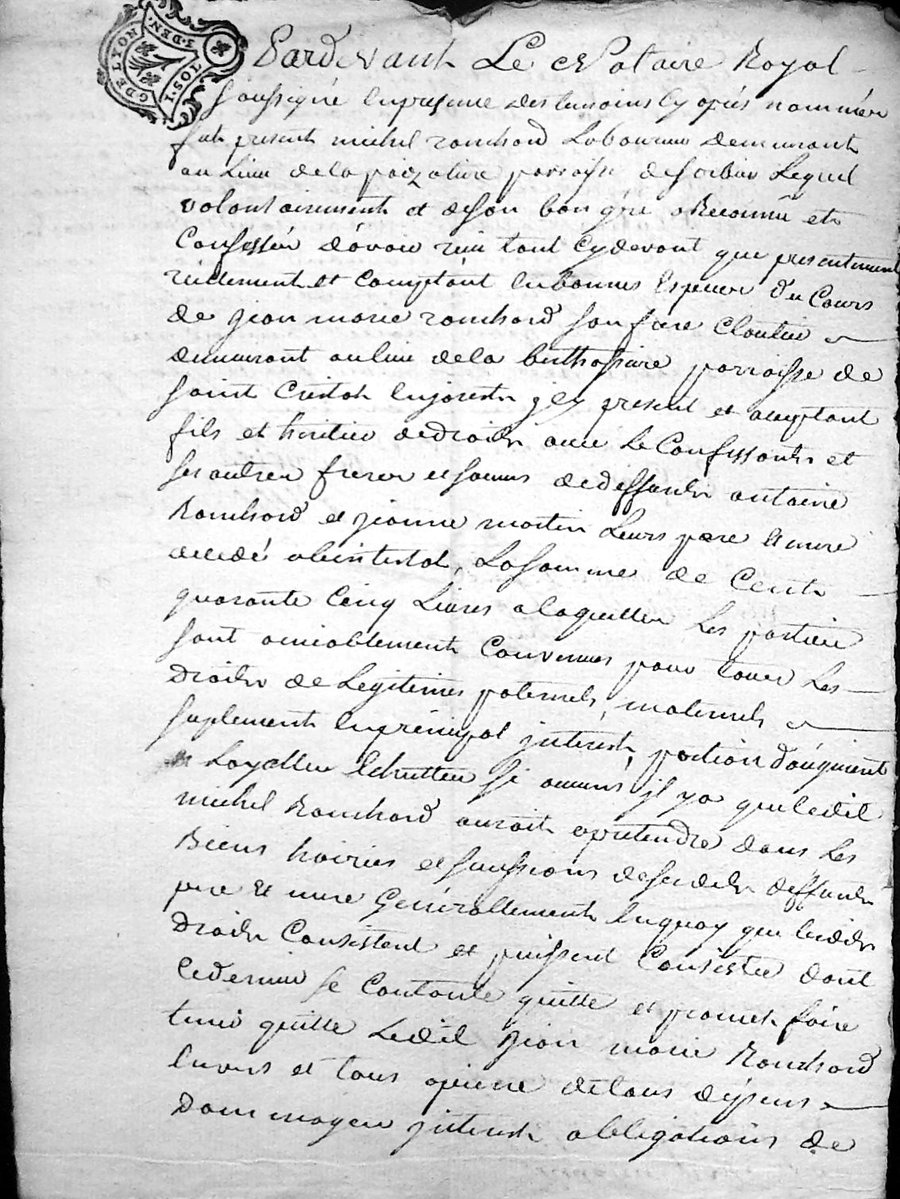 G DE LYON
I. SOL. 3. DEN.
Pardevant Le Notaire Royal
soussigné en presence des temoins cy aprés nommées
fut present michel ranchard Laboureur demeurant
au Lieu de la paroisse de sorbier Lequel
volontairement et de son bon gré a Reconnu et
Confessée d'avoir reçu tant cy devant que presentement
réellement et Comptant en bonnes Especes du Cours
de jean marie ranchard son frere Cloutier
demeurant au lieu de la parroisse de
saint Cristoh en jarest jcy present et acceptant
fils et heritier de droits avec Le Confessants et
ses autres freres et soeurs de deffunts antoine
Ranchard et jeanne martin Leurs pere et mere
decedé abintestat, La somme de Cent
quarante Cinq Livres a laquelle Les parties
sont amiablement Convenues pour tous Les
Droits de Legitimes paternels, maternels
suplement en prinsipal jnterest, portion d'augment
et Loyalle Echutte si aucuns jl y a que ledit
michel Ranchard auroit a pretendre dans Les
Biens hoiries et sucssions desdits deffunts
pere Et mere Genérallement en quoy que lesdits
Droits Consistent et puissent Consister dont
Ce dernier se Contente quitte et promet faire
tenir quitte Ledit Jean marie Ranchard
Envers et tous a peine de tous dépens
Dommages jnterest obligations de